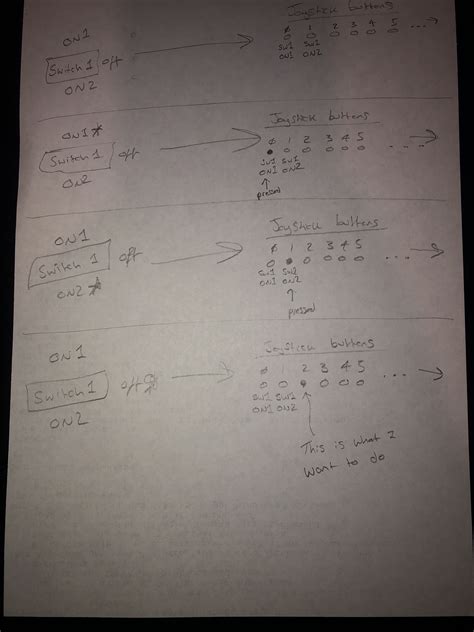 Joystick buttons
ON1
Ø 1 2 3 4 5 ...
Switch 1 off
SW1 SW1
ON1 ON2
ON2
Joystick buttons
ON1*
Ø 1 2 3 4 5
Switch 1 off
...
SW1 SW1
ON1 ON2
ON2
pressed
Joystick buttons
ON1
Ø 1 2 3 4 5
Switch 1 off
...
SW1 SW1
ON1 ON2
ON2*
pressed
Joystick buttons
ON1
Ø 1 2 3 4 5
Switch 1 off
...
SW1 SW1
ON1 ON2
ON2
This is what I
want to do